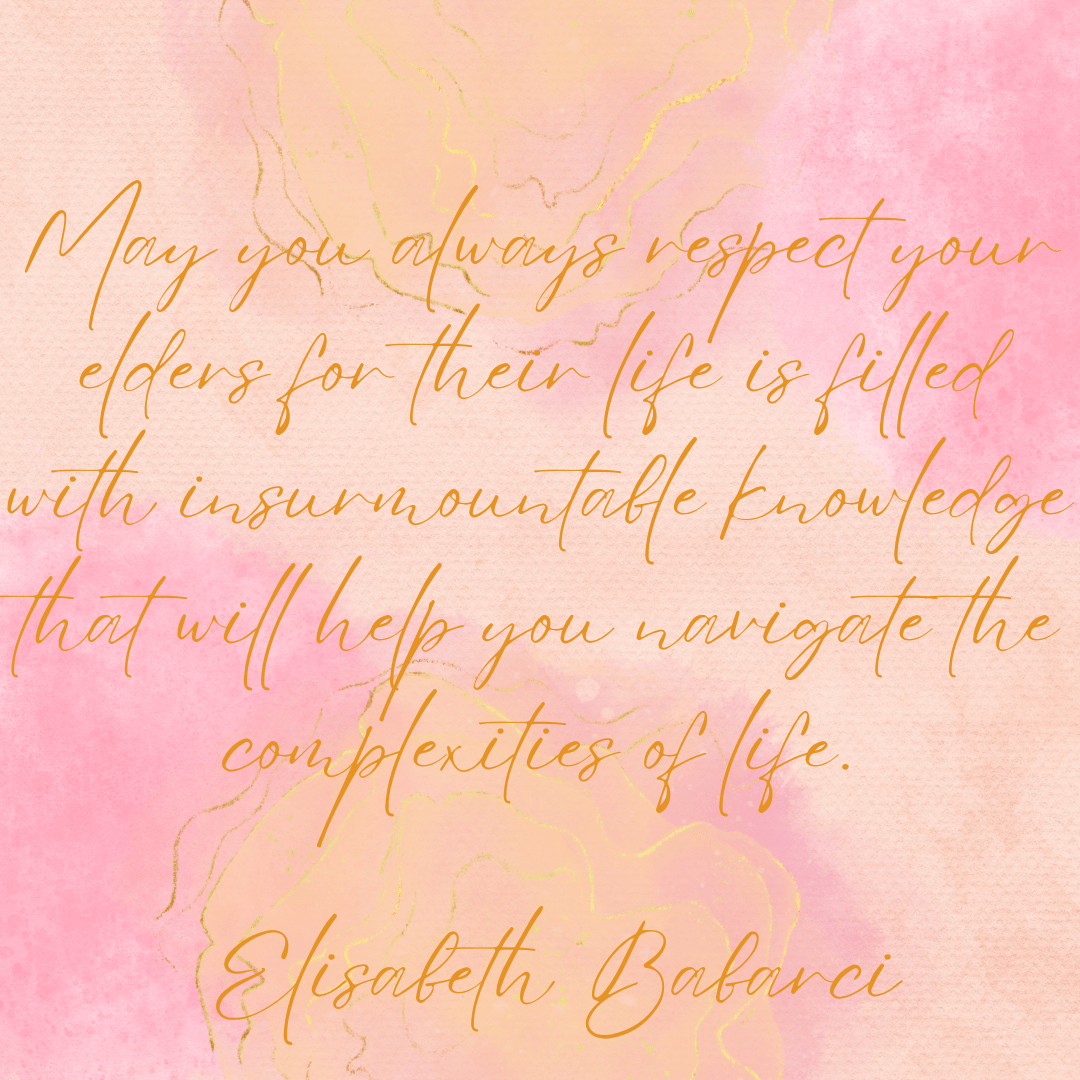 May you always respect your
elders for their life is filled
with insurmountable knowledge
that will help you navigate the
complexities of life.
Elisabeth Babarci